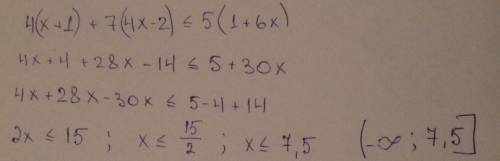 4(x+1) + 7(4x-2) ≤ 5(1+6x)
4x+4 + 28x - 14 ≤ 5 + 30x
4x + 28x - 30x ≤ 5 - 4 + 14
2x ≤ 15 ; x ≤ 15/2 ; x ≤ 7,5 (-∞ ; 7,5]